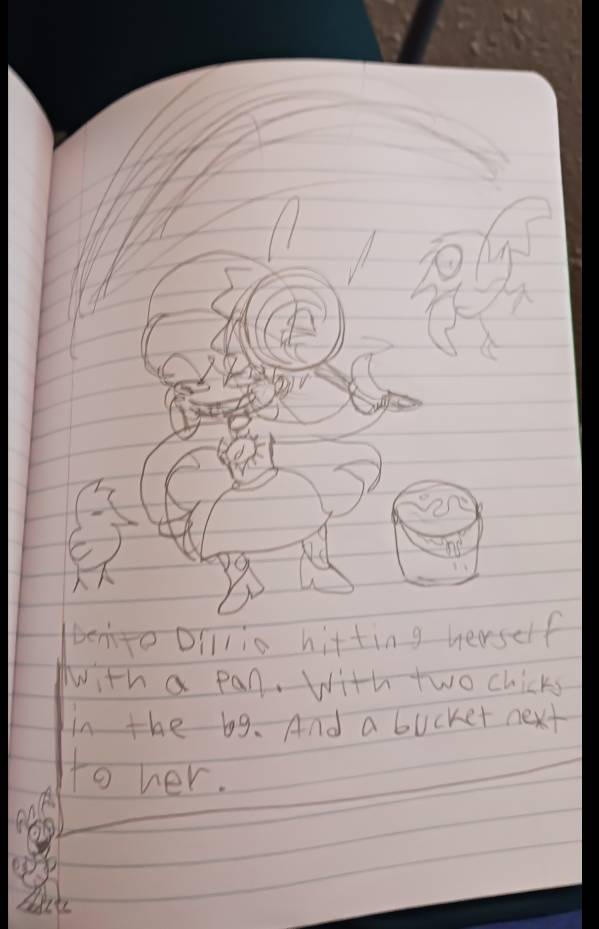 Benito Dillio hitting herself
with a pan. With two chicks
in the bg. And a bucket next
to her.